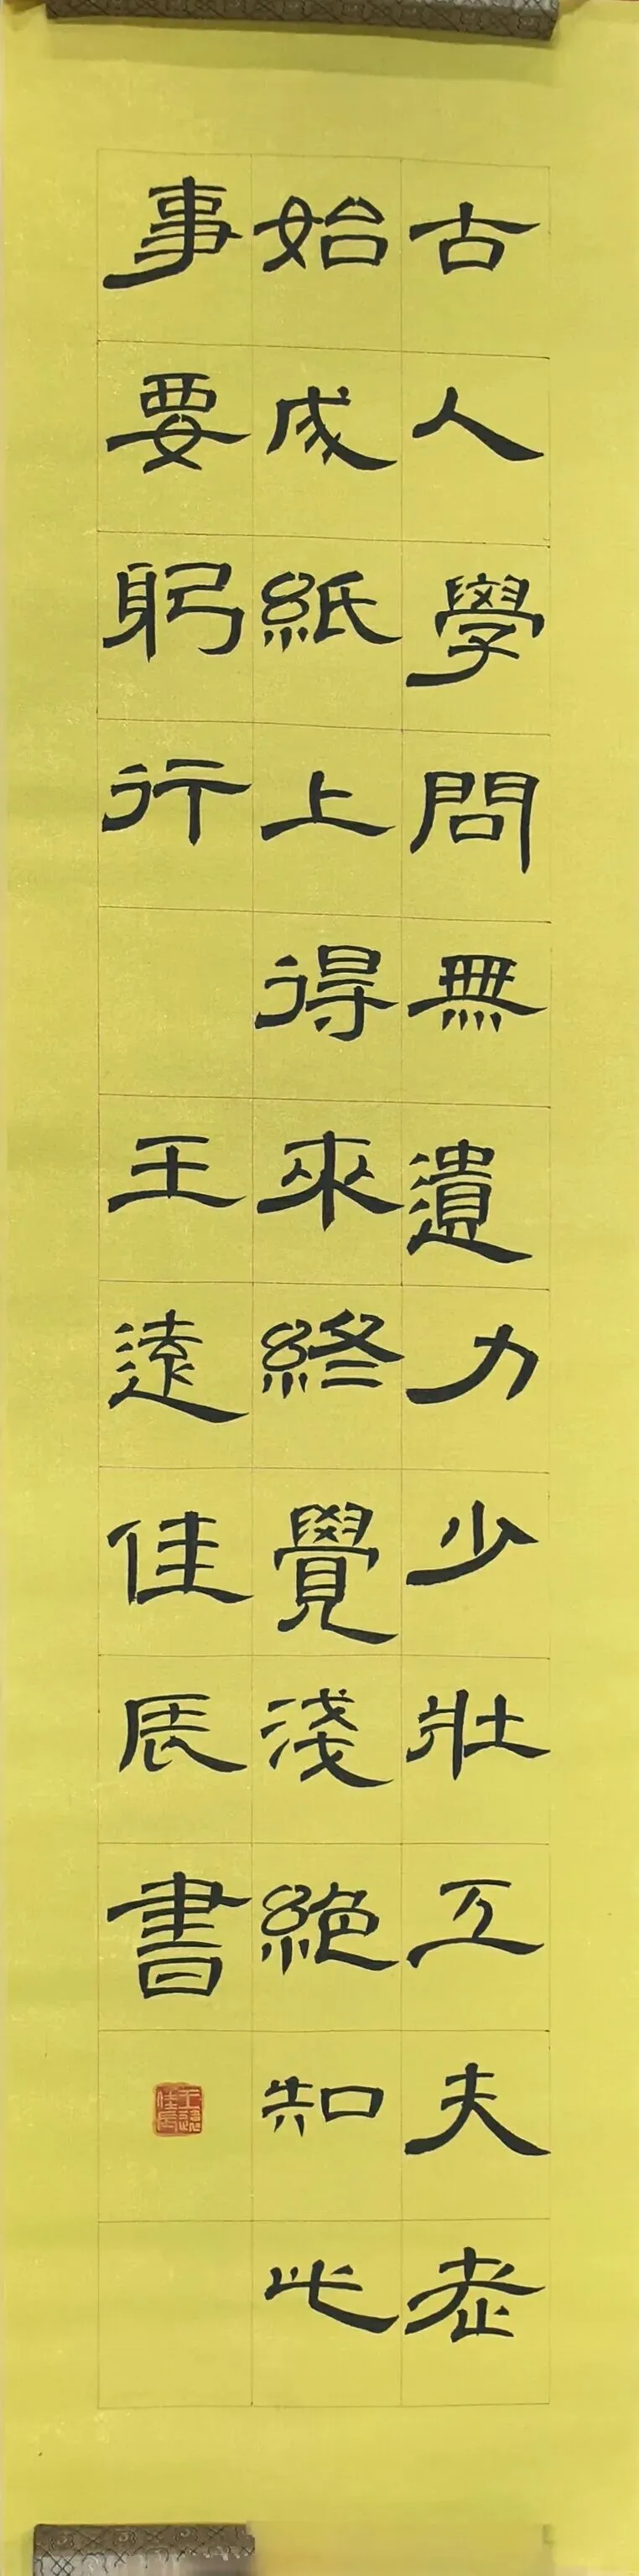 古人學問無遺力少壯工夫老
始成紙上得來終覺淺絕知此
事要躬行 王遠佳辰書